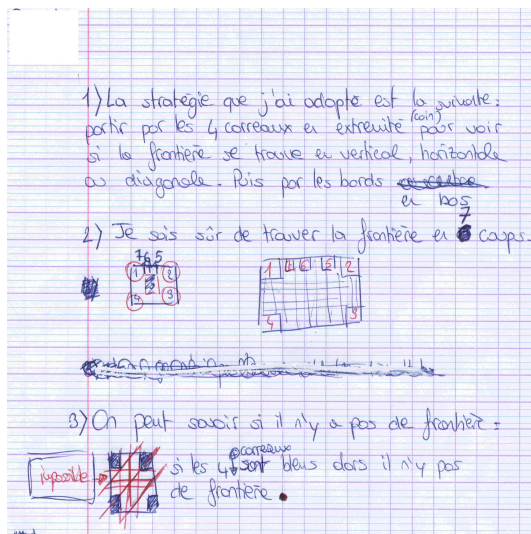 1) La stratégie que j'ai adopté est la suivante :
partir par les 4 carreaux en extremité (coin) pour voir
si la frontière se trouve en vertical, horizontale
ou diagonale. Puis par les bords
en bas
7
2) Je suis sûr de trouver la frontière en coups.
7 6 5
1 2
4 3
1 4 6 5 2
4 3
3) On peut savoir si il n'y a pas de frontière :
impossible
si les 4 carreaux sont bleus alors il n'y pas
de frontière.